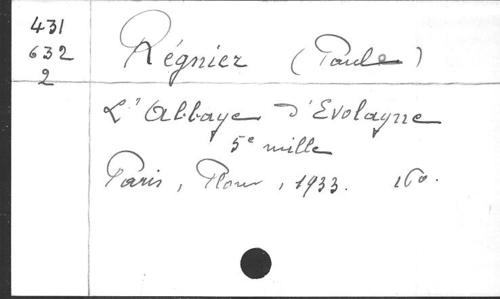 431
632
2
Régnier (Paule)
L'Abbaye d'Evolayne
5e mille
Paris, Plon, 1933. 16o.